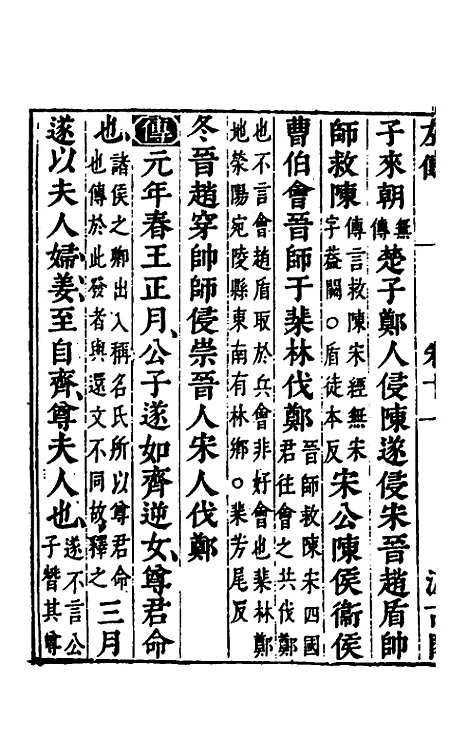 左傳 卷十一 汲古閣
子來朝無傳楚子鄭人侵陳遂侵宋晉趙盾帥
師救陳傳言救陳宋經無宋字蓋闕○盾徒本反宋公陳侯衞侯
曹伯會晉師于棐林伐鄭晉師救陳宋四國君往會之共伐鄭
也不言會趙盾取於兵會非好會也棐林鄭地滎陽宛陵縣東南有林鄉○棐芳尾反
冬晉趙穿帥師侵崇晉人宋人伐鄭
傳元年春王正月公子遂如齊逆女尊君命
也諸侯之卿出入稱名氏所以尊君命也傳於此發者與還文不同故釋之三月
遂以夫人婦姜至自齊尊夫人也遂不言公子替其尊